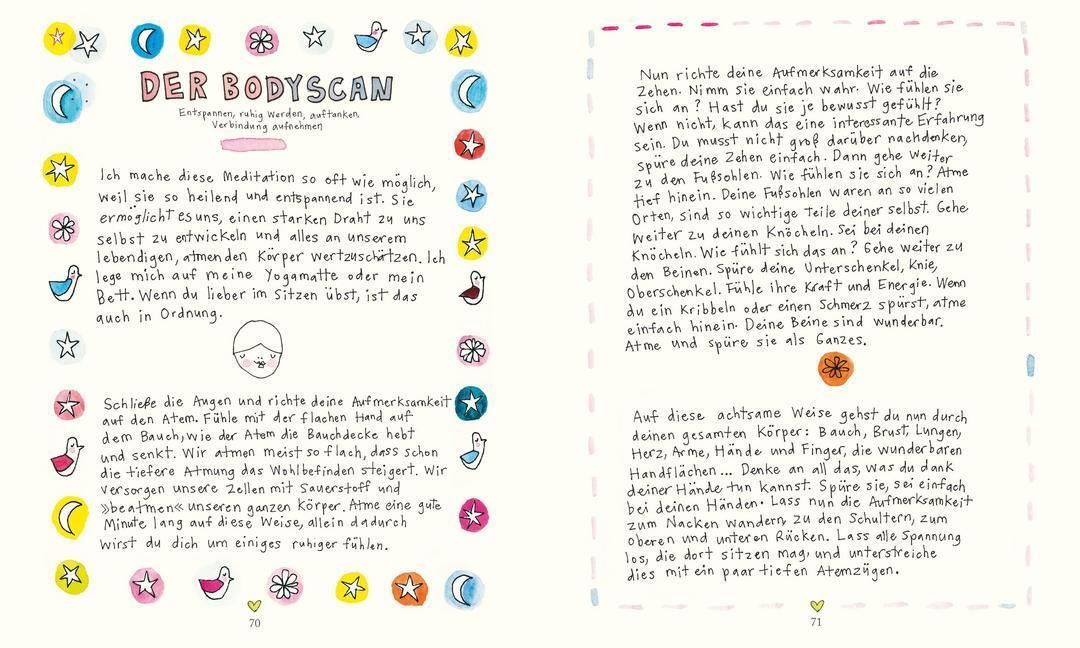 DER BODYSCAN
Entspannen, ruhig werden, auftanken,
Verbindung aufnehmen
Ich mache diese Meditation so oft wie möglich,
weil sie so heilend und entspannend ist. Sie
ermöglicht es uns, einen starken Draht zu uns
selbst zu entwickeln und alles an unserem
lebendigen, atmenden Körper wertzuschätzen. Ich
lege mich auf meine Yogamatte oder mein
Bett. Wenn du lieber im Sitzen übst, ist das
auch in Ordnung.
Schließe die Augen und richte deine Aufmerksamkeit
auf den Atem. Fühle mit der flachen Hand auf
dem Bauch, wie der Atem die Bauchdecke hebt
und senkt. Wir atmen meist so flach, dass schon
die tiefere Atmung das Wohlbefinden steigert. Wir
versorgen unsere Zellen mit Sauerstoff und
»beatmen« unseren ganzen Körper. Atme eine gute
Minute lang auf diese Weise, allein dadurch
wirst du dich um einiges ruhiger fühlen.
70
Nun richte deine Aufmerksamkeit auf die
Zehen. Nimm sie einfach wahr. Wie fühlen sie
sich an? Hast du sie je bewusst gefühlt?
Wenn nicht, kann das eine interessante Erfahrung
sein. Du musst nicht groß darüber nachdenken,
spüre deine Zehen einfach. Dann gehe weiter
zu den Fußsohlen. Wie fühlen sie sich an? Atme
tief hinein. Deine Fußsohlen waren an so vielen
Orten, sind so wichtige Teile deiner selbst. Gehe
weiter zu deinen Knöcheln. Sei bei deinen
Knöcheln. Wie fühlt sich das an? Gehe weiter zu
den Beinen. Spüre deine Unterschenkel, Knie,
Oberschenkel. Fühle ihre Kraft und Energie. Wenn
du ein Kribbeln oder einen Schmerz spürst, atme
einfach hinein. Deine Beine sind wunderbar.
Atme und spüre sie als Ganzes.
Auf diese achtsame Weise gehst du nun durch
deinen gesamten Körper: Bauch, Brust, Lungen,
Herz, Arme, Hände und Finger, die wunderbaren
Handflächen... Denke an all das, was du dank
deiner Hände tun kannst. Spüre sie, sei einfach
bei deinen Händen. Lass nun die Aufmerksamkeit
zum Nacken wandern, zu den Schultern, zum
oberen und unteren Rücken. Lass alle Spannung
los, die dort sitzen mag, und unterstreiche
dies mit ein paar tiefen Atemzügen.
71